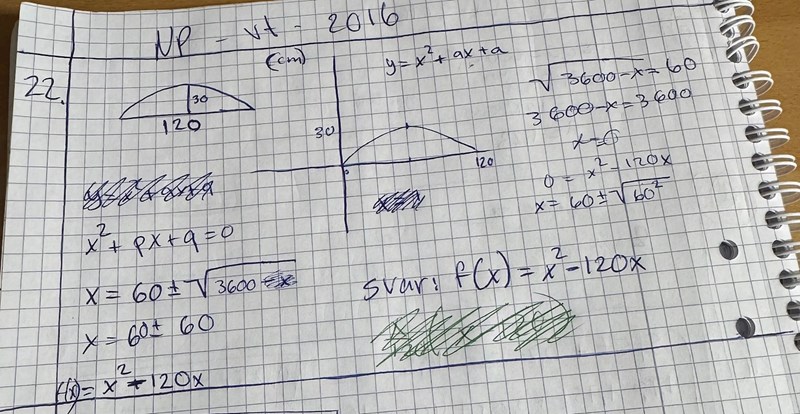 NP - vt - 2016
22.
30
120
(cm)
y = x² + ax + a
30
120
x² + px + q = 0
x = 60 ± √3600
x = 60 ± 60
f(x) = x² - 120x
√3600 - x = 60
3600 - x = 3600
x = 0
0 = x² - 120x
x = 60 ± √60²
svar: f(x) = x² - 120x